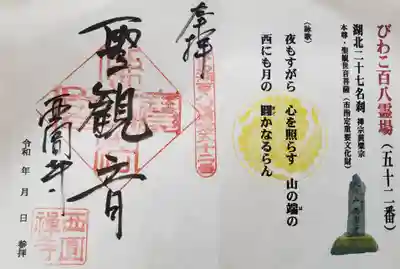 びわこ百八霊場（五十二番）
湖北二十七名刹 禅宗黄檗宗
本尊・聖観世音菩薩（市指定重要文化財）
（詠歌）
夜もすがら 心を照らす 山の端の
西にも月の 圓かなるらん
奉拝
聖観音
西圓寺
令和 年 月 日 参拝
西圓禅寺